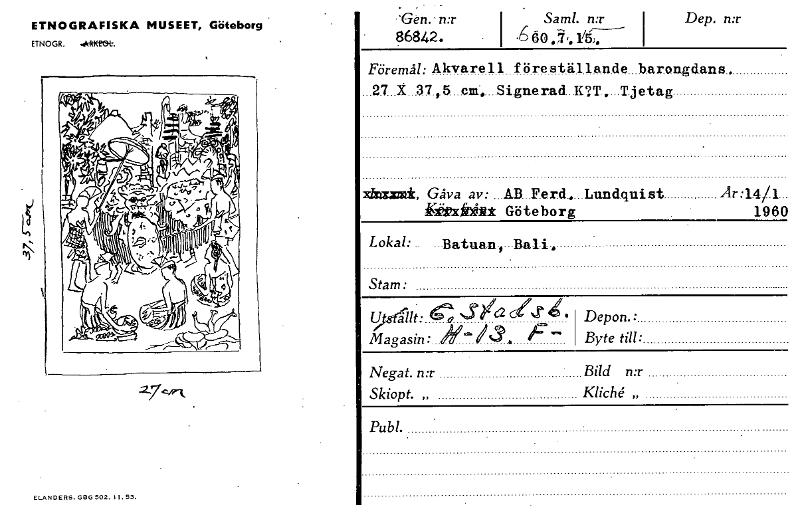 ETNOGRAFISKA MUSEET, Göteborg
ETNOGR. ARKEOL.
37,5 cm
27 cm
ELANDERS. GBG 502. 11. 53.
Gen. n:r Saml. n:r Dep. n:r
86842. 60.7.15.
Föremål: Akvarell föreställande barongdans.
27 X 37,5 cm. Signerad K?T. Tjetag
Gåva av: AB Ferd. Lundquist År: 14/1
Göteborg 1960
Lokal: Batuan, Bali.
Stam:
Utställt: G. Stadsb. Depon.:
Magasin: H-13. F- Byte till:
Negat. n:r Bild n:r
Skiopt. „ Kliché „
Publ.